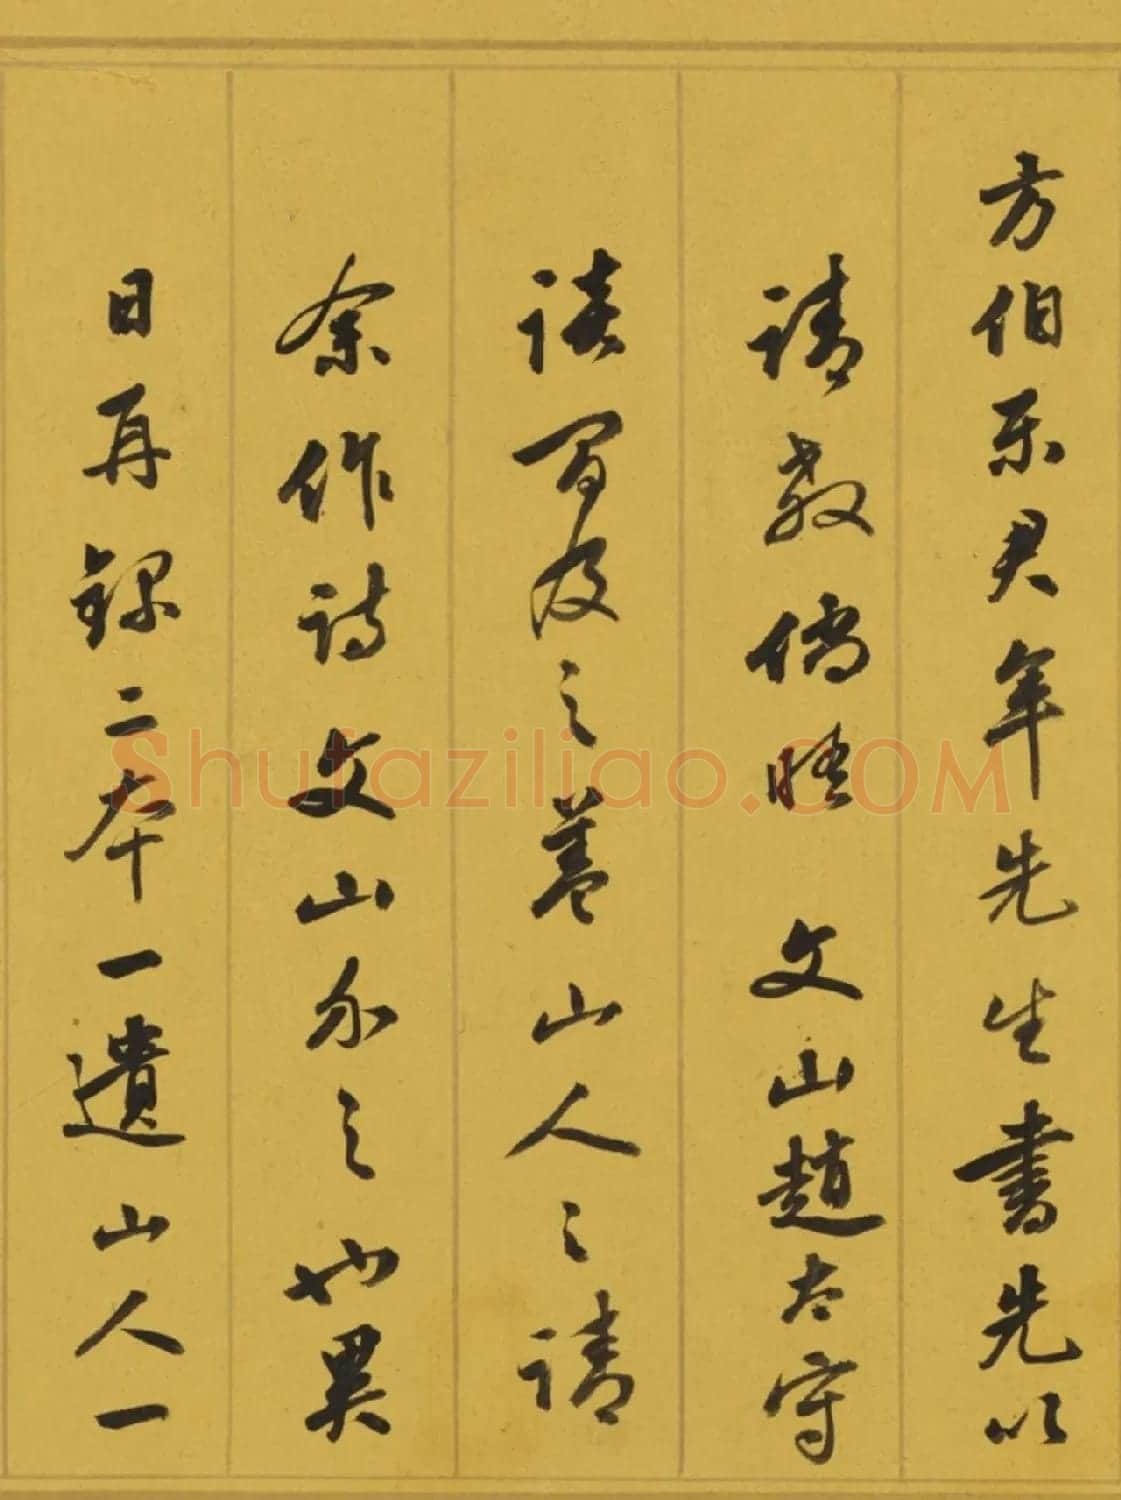 方伯乐君年先生书先以
请教倘晤 文山赵太守
谈间及之盖山人之请
余作诗文山尒之如异
日再录二本一遗山人一
Shufaziliao.COM